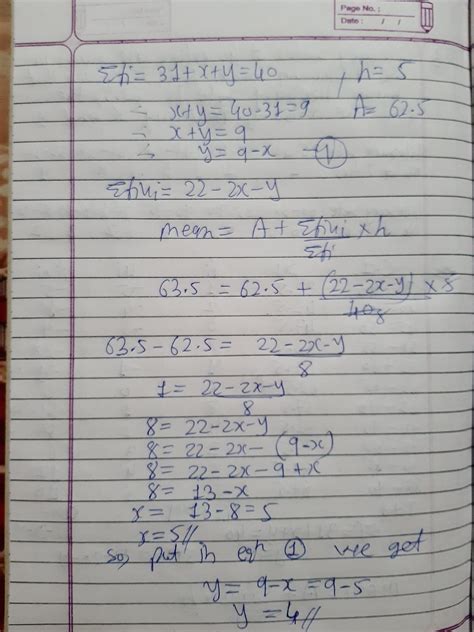 Page No. :
Date : / /
Σfi = 31+x+y = 40 , h = 5
∴ x+y = 40-31 = 9 A = 62.5
∴ x+y = 9
∴ y = 9-x — ①
Σfiui = 22-2x-y
mean = A + Σfiui/Σfi × h
63.5 = 62.5 + (22-2x-y)/40 8 × 5
63.5 - 62.5 = 22-2x-y/8
1 = 22-2x-y/8
8 = 22-2x-y
8 = 22-2x-(9-x)
8 = 22-2x-9+x
8 = 13-x
x = 13-8 = 5
x = 5//
So, put in eqn ① we get
y = 9-x = 9-5
y = 4//